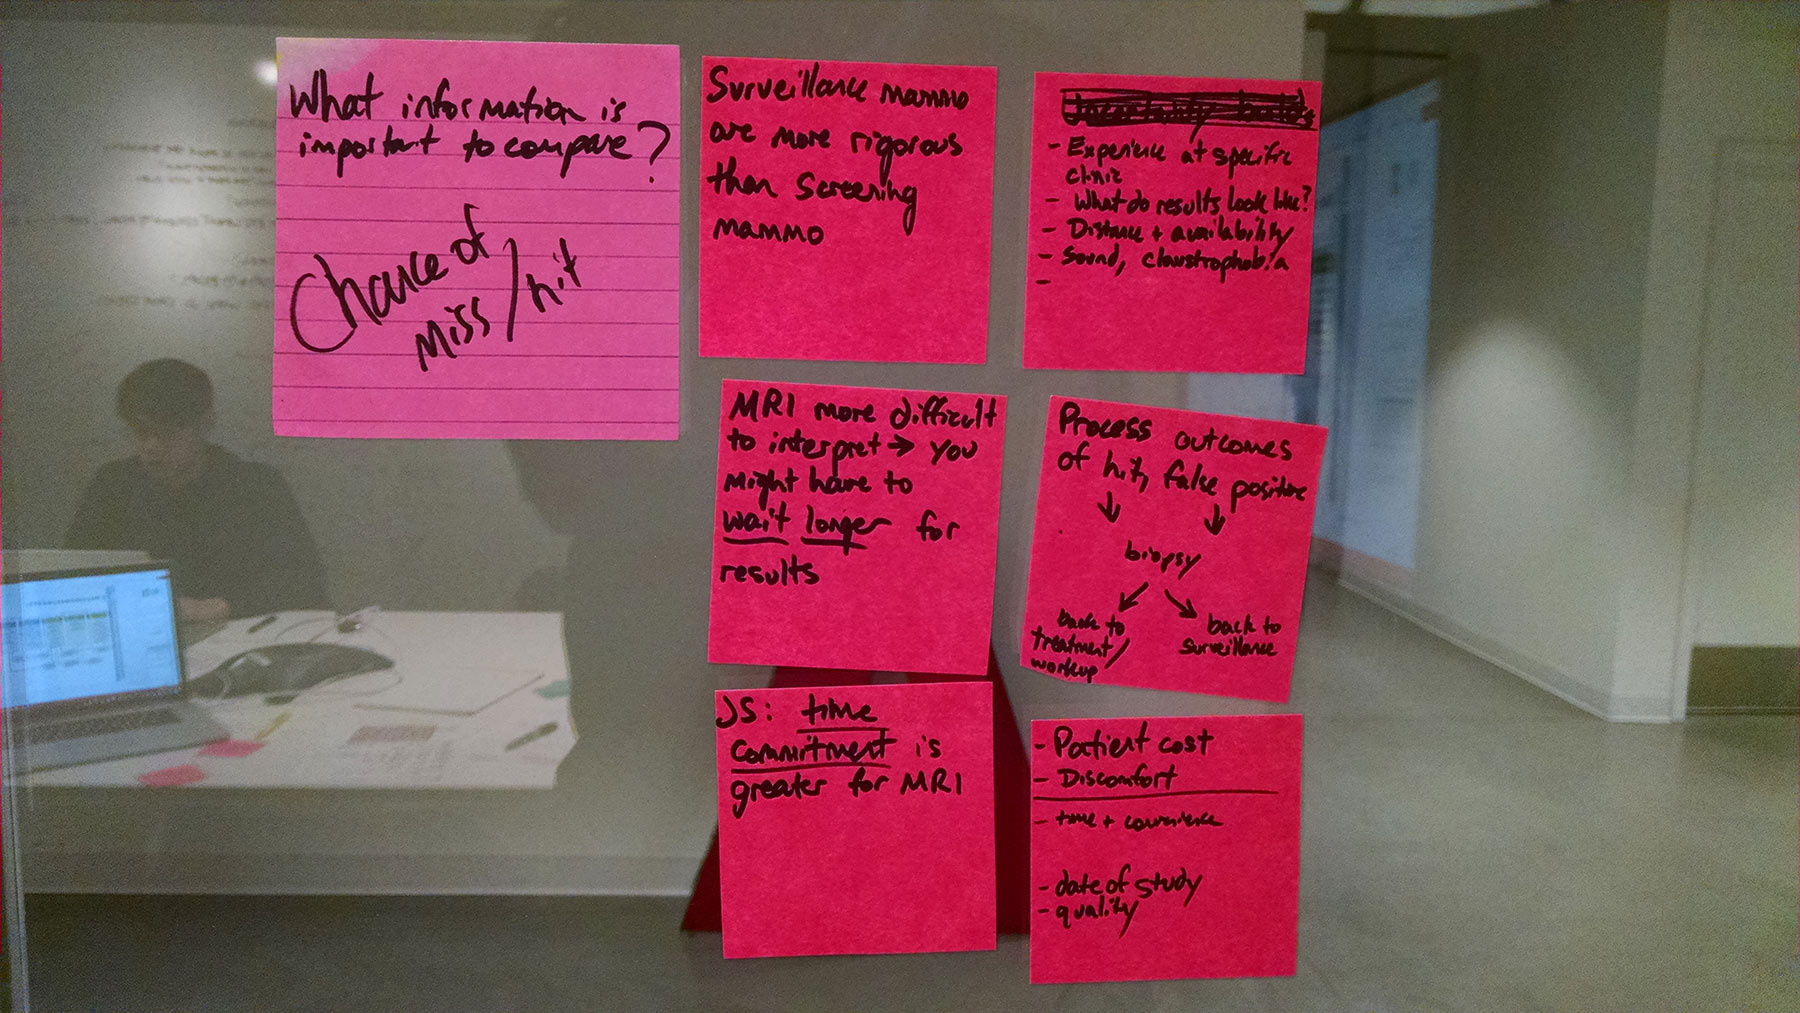 What information is
important to compare?
Chance of
miss/hit
Surveillance mammo
are more rigorous
than screening
mammo
- Experience at specific
clinic
- What do results look like?
- Distance + availability
- Sound, claustrophobia
-
MRI more difficult
to interpret → you
might have to
wait longer for
results
Process outcomes
of hit, false positive
↓ ↓
biopsy
↙ ↘
back to
treatment/
workup
back to
surveillance
JS: time
commitment is
greater for MRI
- Patient cost
- Discomfort
- time + convenience
- date of study
- quality